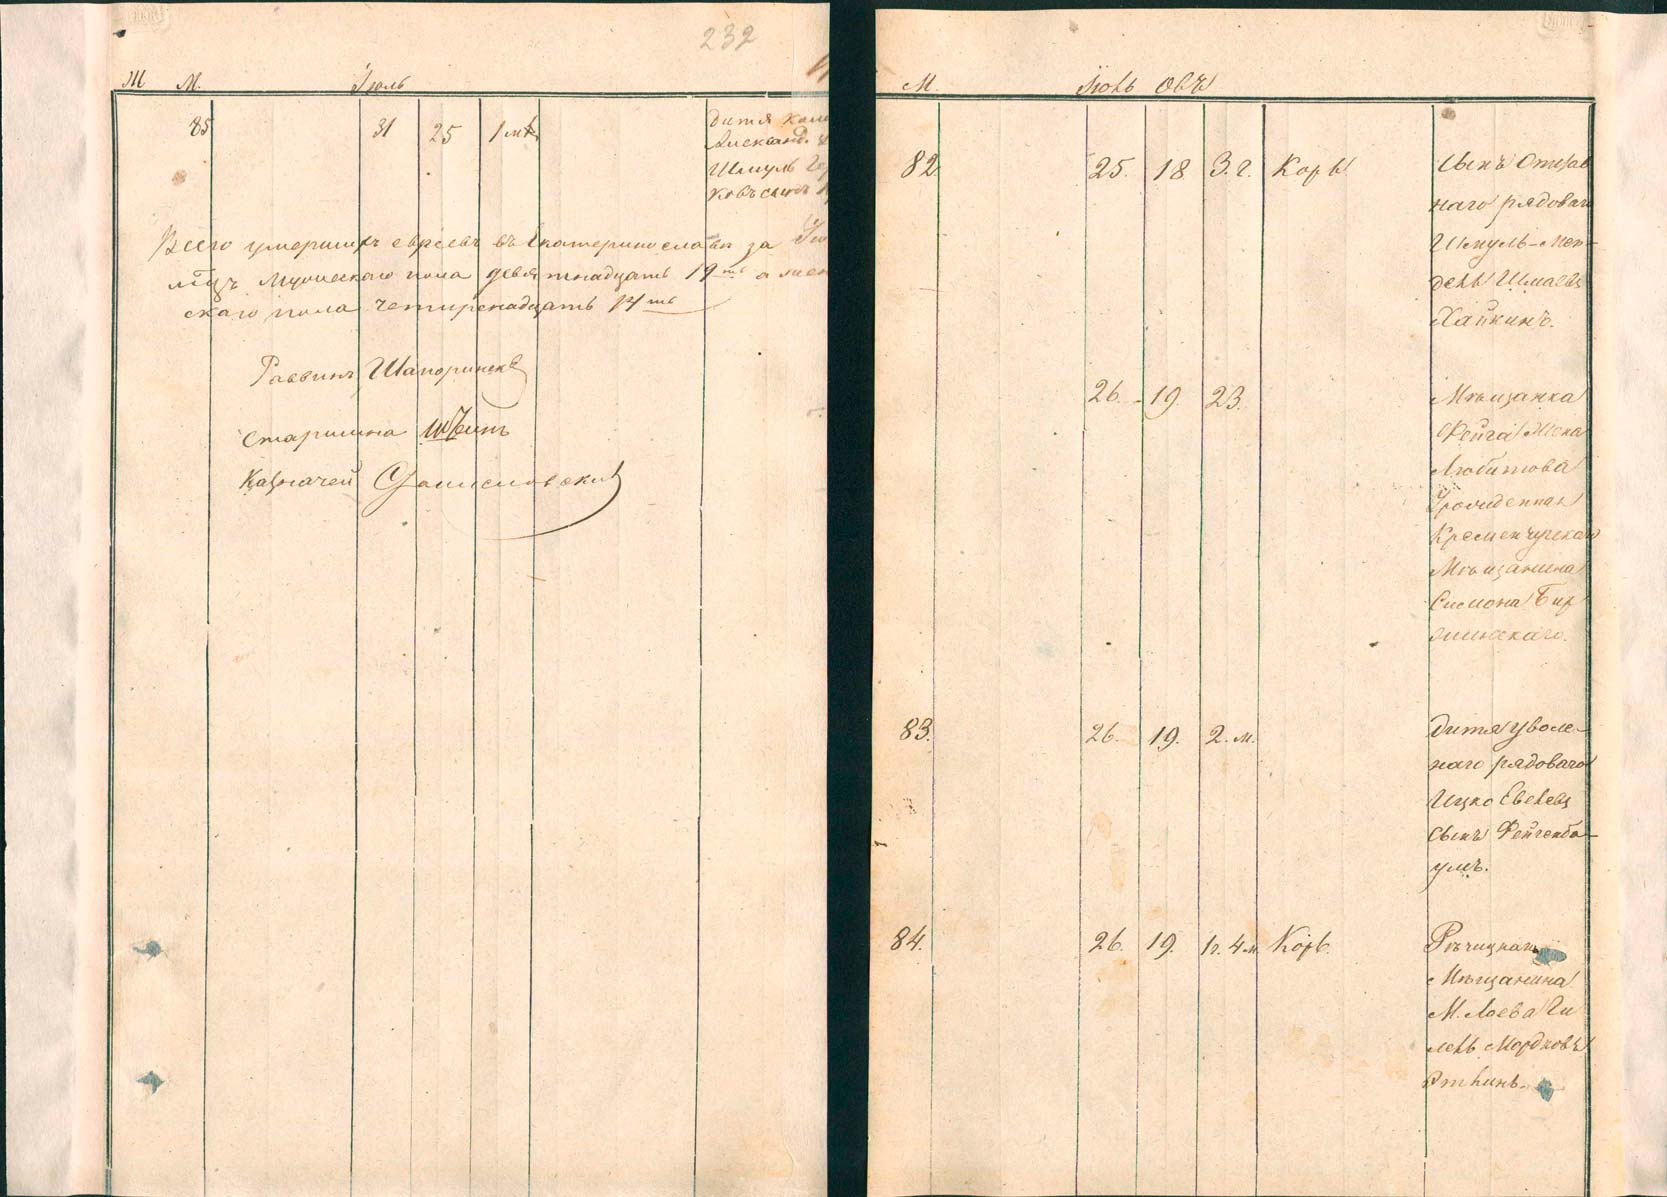 232
Ж М. Іюль
85 31 25 1 мѣ
дитя
Александ.
Шмуль
ковъ сынъ
Всего умершихъ евреевъ въ Екатеринославѣ за
мцъ Мужескаго пола девятнадцать 19ть а жен
скаго пола четырнадцать 14ть
Раввинъ Шапоринскъ
Старшина
Казначей
М. Іюль Овъ
82. 25. 18 3. г. Корь
Сынъ Отстав
наго рядоваго
Шмуль-Мен-
дель Шмаевъ
Хайкинъ.
26. 19. 23.
Мѣщанка
Фейга Жена
Любитова
Урожденная
Кременчугскаго
Мѣщанина
Симона Бир
зминскаго.
83. 26. 19. 2. м.
Дитя уволе-
наго рядоваго
Ицко
сынъ Фейгенба-
умъ.
84. 26. 19. 1г. 4 м. Корь.
Рѣчицкаго
Мѣщанина
М. Лоева Ги
лель Мордковъ